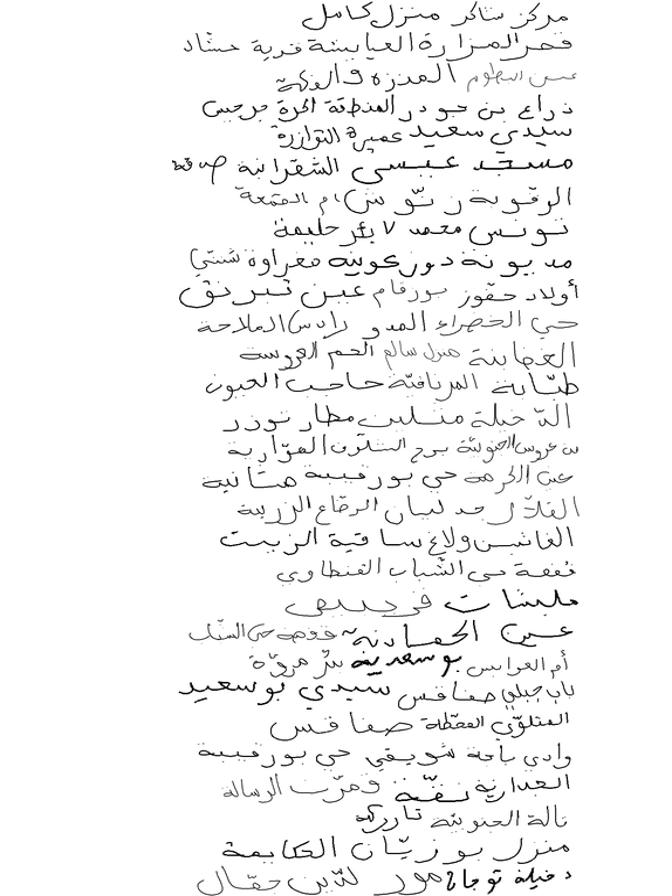 مركز شاكر منزل كامل
قصر المزارة العيايشة قرية حشاد
المنزه
ذراع بن جودر المنطقة الحرة جرجيس
سيدي سعيد عميرة التوازرة
مسجد عيسى الشقرانية صدقة
الرقوبة زنّوش أم القمعة
تونس محمد ٧ بئر حليمة
مديونة دوز عوينة مغراوة شنني
أولاد حفوز بورقام عين تبرنق
حي الخضراء المدو رادس الملاحة
الغضابنة منزل سالم الجم العروسة
طبّابة المرناقيّة حاجب العيون
الدّخيلة متلين مطار توزر
بن عروس الجنوبيّة برج السلوقي الهوّارية
عين الكرمة حي بورقيبة هبّانية
القلال جد ليان الرضاع الزريبة
ساقية الزيت
قفصة حي الشباب القنطاوي
مليشات
عين الحمادنة قفصة حي الشباب
أم العرايس بوسعدية بئر مروّة
باب جبلي صفاقس سيدي بوسعيد
المتلوّي المحطة صفاقس
وادي باجة شويقي حي بورقيبة
العبدارية نفّة قمرّت الرسالة
تالة الجنوبيّة تازركة
منزل بوزيّان